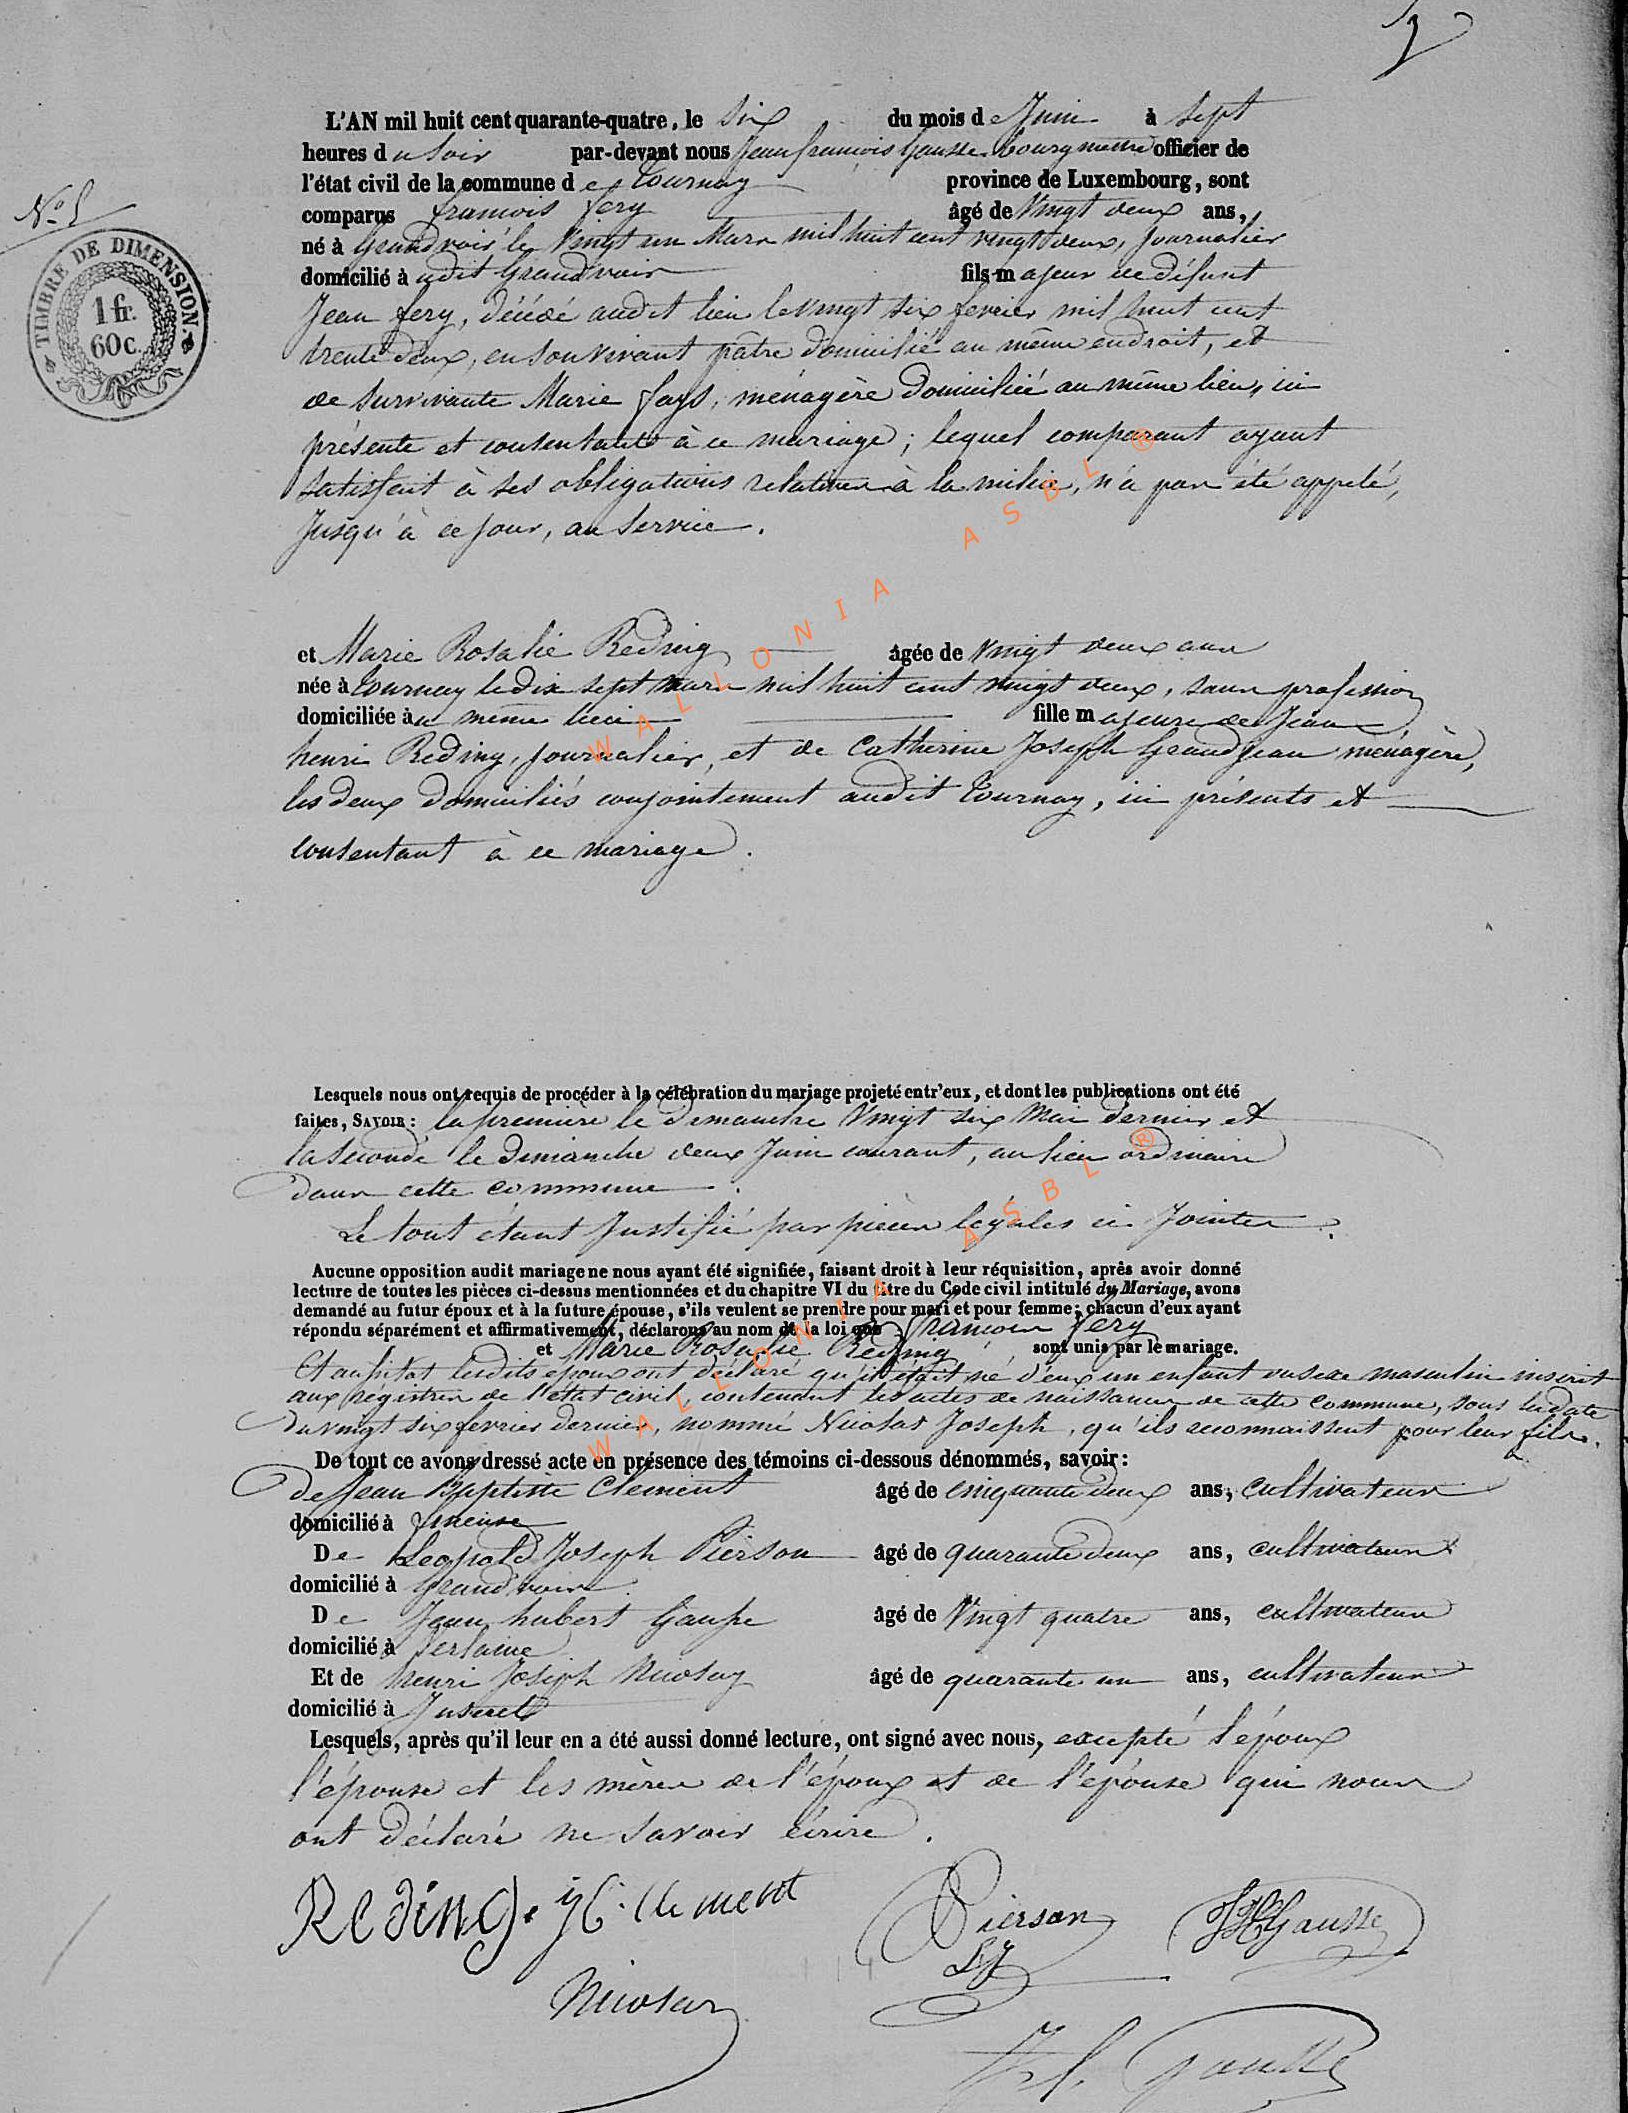 2
L'AN mil huit cent quarante-quatre, le six du mois de Juin à sept
heures du Soir par-devant nous Jean françois Gausse bourgmestre officier de
l'état civil de la commune de Tournay province de Luxembourg, sont
N.° 5
comparus françois fery âgé de Vingt deux ans,
né à Grandvoir le Vingt un Mars mil huit cent vingt deux, Journalier
domicilié à udit Grandvoir fils majeur de défunt
TIMBRE DE DIMENSION.
1 fr.
60 c.
Jean fery, décédé audit lieu le vingt six fevrier mil huit cent
trente deux, en son vivant pâtre domicilié au même endroit, et
de survivante Marie fays, ménagère domiciliée au même lieu, ici
présente et consentante à ce mariage; lequel comparant ayant
satisfait à ses obligations relatives à la milice, n'a pas été appelé,
Jusqu'à ce jour, au Service.
et Marie Rosalie Reding âgée de Vingt deux ans
née à Tournay le dix sept mars mil huit cent vingt deux, sans profession
domiciliée au même lieu fille majeure de Jean
henri Reding, Journalier, et de Catherine Joseph Grandjean ménagère,
les deux domiciliés conjointement audit Tournay, ici présents et
consentant à ce mariage.
Lesquels nous ont requis de procéder à la célébration du mariage projeté entr'eux, et dont les publications ont été
faites, SAVOIR: la première le dimanche Vingt six Mai dernier et
la Seconde le dimanche deux Juin courant, au lieu ordinaire
dans cette commune.
Le tout étant Justifié par pièces légales ci Jointes.
Aucune opposition audit mariage ne nous ayant été signifiée, faisant droit à leur réquisition, après avoir donné
lecture de toutes les pièces ci-dessus mentionnées et du chapitre VI du titre du Code civil intitulé du Mariage, avons
demandé au futur époux et à la future épouse, s'ils veulent se prendre pour mari et pour femme; chacun d'eux ayant
répondu séparément et affirmativement, déclarons au nom de la loi que françois fery
et Marie Rosalie Reding sont unis par le mariage.
Et aussitot lesdits époux ont déclaré qu'il était né d'eux un enfant du sexe masculin inscrit
aux registres de l'état civil, contenant les actes de naissances de cette commune, sous la date
du vingt six fevrier dernier, nommé Nicolas Joseph, qu'ils reconnaissent pour leur fils.
De tout ce avons dressé acte en présence des témoins ci-dessous dénommés, savoir:
de Jean Baptiste Clement âgé de cinquante deux ans, cultivateur
domicilié à
De Leopold Joseph Pierson âgé de quarante deux ans, cultivateur
domicilié à Grandvoir
De Jean hubert Gausse âgé de Vingt quatre ans, cultivateur
domicilié à Verlaine
Et de henri Joseph Nicolay âgé de quarante un ans, cultivateur
domicilié à Juseret
Lesquels, après qu'il leur en a été aussi donné lecture, ont signé avec nous, excepté l'époux
l'épouse et les mères de l'époux et de l'épouse qui nous
ont déclaré ne savoir écrire.
Reding. Clement Pierson LJ JHGausse
Nicolay
Gausse
WALLONIA ASBL ®
WALLONIA ASBL ®